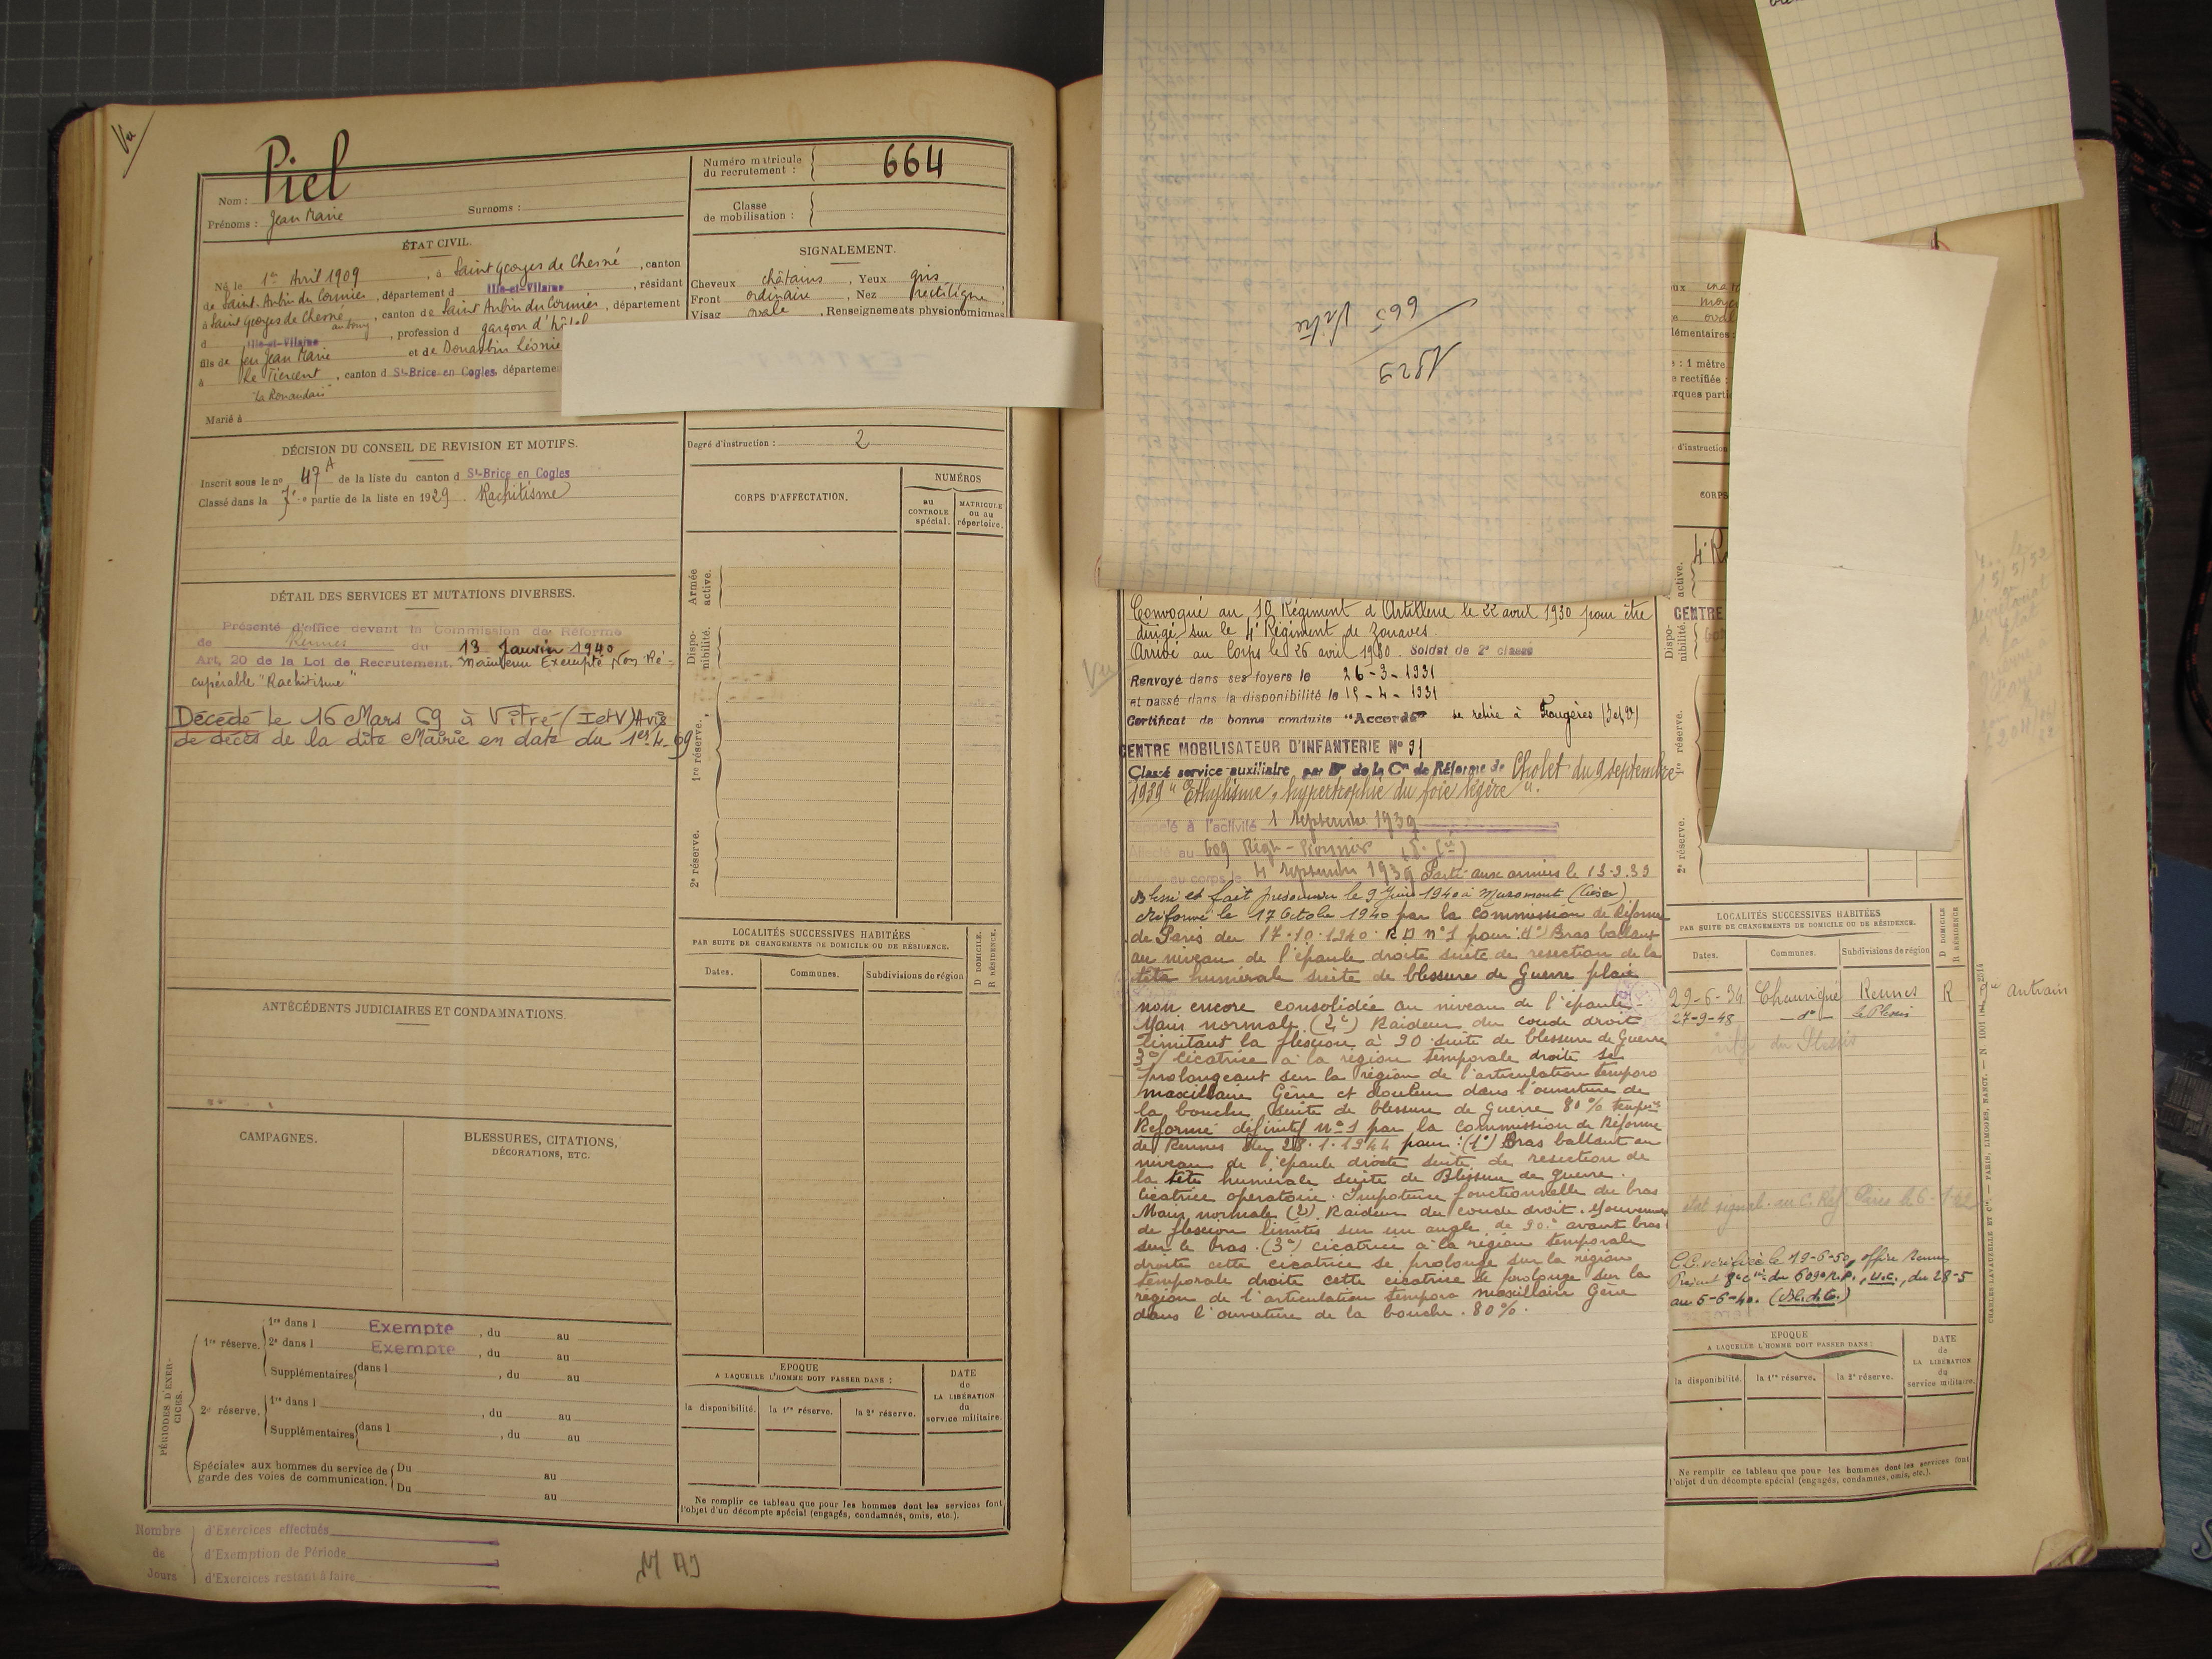 Vu
Nom : Piel
Prénoms : Jean Marie Surnoms :
Numéro matricule du recrutement : 664
Classe de mobilisation :
ÉTAT CIVIL.
Né le 1er Avril 1909, à Saint Georges de Chesné, canton
de Saint-Aubin du Cormier, département d Ille-et-Vilaine, résidant
à Saint Georges de Chesné, canton de Saint Aubin du Cormier, département
au bourg
d Ille-et-Vilaine, profession d garçon d'hôtel
fils de feu Jean Marie et de Douabin Léonie
à Le Tiercent, canton d St-Brice en Cogles, départeme
Marié à
SIGNALEMENT.
Cheveux châtains, Yeux gris
Front ordinaire, Nez rectiligne
Visag ovale, Renseignements physionomiques
Degré d'instruction : 2
DÉCISION DU CONSEIL DE REVISION ET MOTIFS.
Inscrit sous le no 47 A de la liste du canton d St-Brice en Cogles
Classé dans la 7e partie de la liste en 1929. Rachitisme
CORPS D'AFFECTATION.
NUMÉROS
au CONTROLE spécial.
MATRICULE ou au répertoire.
Armée active.
Dispo-nibilité.
1re réserve.
2e réserve.
DÉTAIL DES SERVICES ET MUTATIONS DIVERSES.
Présenté d'office devant la Commission de Réforme
de Rennes du 13 Janvier 1940
Art. 20 de la Loi de Recrutement. Maintenu Exempté Non Ré-
cupérable "Rachitisme"
Décédé le 16 Mars 69 à Vitré (I et V) Avis
de décès de la dite Mairie en date du 1er-4-69
ANTÉCÉDENTS JUDICIAIRES ET CONDAMNATIONS.
CAMPAGNES.
BLESSURES, CITATIONS, DÉCORATIONS, ETC.
LOCALITÉS SUCCESSIVES HABITÉES
PAR SUITE DE CHANGEMENTS DE DOMICILE OU DE RÉSIDENCE.
D DOMICILE.
R RÉSIDENCE.
Dates. Communes. Subdivisions de région
PÉRIODES D'EXERCICES.
1re réserve. 1re dans l Exempte, du au
2e dans l Exempte, du au
Supplémentaires dans l, du au
2e réserve. 1re dans l, du au
Supplémentaires dans l, du au
Spéciales aux hommes du service de garde des voies de communication. Du au
Du au
EPOQUE
A LAQUELLE L'HOMME DOIT PASSER DANS :
la disponibilité. la 1re réserve. la 2e réserve.
DATE de LA LIBÉRATION du service militaire.
Ne remplir ce tableau que pour les hommes dont les services font
l'objet d'un décompte spécial (engagés, condamnés, omis, etc.).
Nombre de Jours
d'Exercices effectués
d'Exemption de Période
d'Exercices restant à faire
1929
665 Vitré
Convoqué au 10 Régiment d'Artillerie le 22 avril 1930 pour être
dirigé sur le 4e Régiment de Zouaves.
Arrivé au Corps le 26 avril 1930 Soldat de 2e classe
Renvoyé dans ses foyers le 26-3-1931
et passé dans la disponibilité le 15-4-1931
Certificat de bonne conduite "Accordé" se retire à Fougères (I et V)
CENTRE MOBILISATEUR D'INFANTERIE No 91
Classé service auxiliaire par Don de la Con de Réforme de Cholet du 9 septembre
1939 "Ethylisme, hypertrophie du foie légère".
Rappelé à l'activité 1 septembre 1939
Affecté au 609 Régt Pionnier
au corps le 4 septembre 1939 Parti aux armées le 13-9-39
Blessé et fait prisonnier le 9 Juin 1940 à
Réformé le 17 Octobre 1940 par la commission de Réforme
de Paris du 17.10.1940 RD no 1 pour : 1o) Bras ballant
au niveau de l'épaule droite suite de resection de la
tête humérale suite de blessure de Guerre plaie
non encore consolidée au niveau de l'épaule -
Main normale (2o) Raideur du coude droit
limitant la flexion à 90 suite de blessure de Guerre
3o) cicatrice à la région temporale droite se
prolongeant sur la région de l'articulation temporo
maxillaire Gêne et douleur dans l'ouverture de
la bouche suite de blessure de Guerre 80% tempre
Réformé définitif no 1 par la commission de Réforme
de Rennes du 28.1.1944 pour : (1o) Bras ballant au
niveau de l'épaule droite suite de resection de
la tête humérale suite de Blessure de guerre.
Cicatrice opératoire. Impotence fonctionnelle du bras
Main normale (2) Raideur du coude droit. Mouvement
de flexion limités sur un angle de 90° avant bras
sur le bras. (3o) cicatrice à la région temporale
droite cette cicatrice se prolonge sur la région
temporale droite cette cicatrice se prolonge sur la
région de l'articulation temporo maxillaire Gêne
dans l'ouverture de la bouche. 80%.
: 1 mètre
rectifiée
d'instruction
CORPS
active.
CENTRE
Dispo-nibilité.
2e réserve.
LOCALITÉS SUCCESSIVES HABITÉES
PAR SUITE DE CHANGEMENTS DE DOMICILE OU DE RÉSIDENCE.
D DOMICILE
R RÉSIDENCE.
Dates. Communes. Subdivisions de région
29-6-34 Chauvigné Rennes R
27-9-48 - do - Le Plessis
Antrain
C.C. vérifiée le 19-6-50,
du 609e R.P., U.C., du 28-5
au 6-6-40.
EPOQUE
A LAQUELLE L'HOMME DOIT PASSER DANS :
la disponibilité. la 1re réserve. la 2e réserve.
DATE de LA LIBÉRATION du service militaire.
Ne remplir ce tableau que pour les hommes dont les services font
l'objet d'un décompte spécial (engagés, condamnés, omis, etc.).
CHARLES-LAVAUZELLE ET Cie. — PARIS, LIMOGES, NANCY.